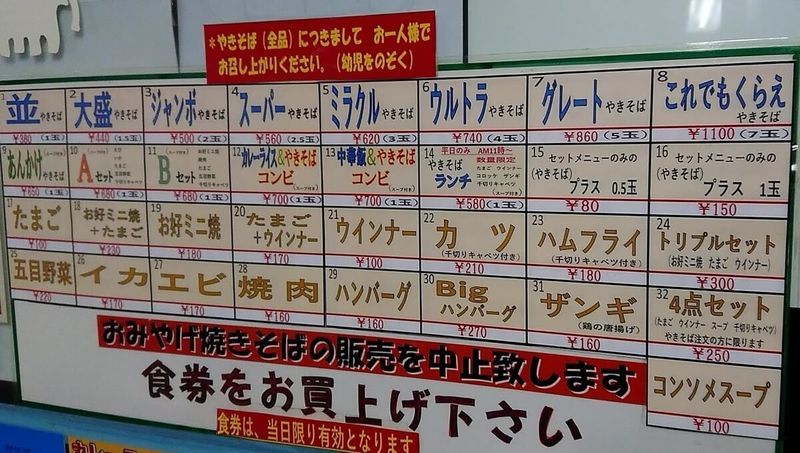 *やきそば（全品）につきまして お一人様で
お召し上がりください。（幼児をのぞく）
1 並 やきそば ¥380（1玉）
2 大盛 やきそば ¥440（1.5玉）
3 ジャンボ やきそば ¥500（2玉）
4 スーパー やきそば ¥560（2.5玉）
5 ミラクル やきそば ¥620（3玉）
6 ウルトラ やきそば ¥740（4玉）
7 グレート やきそば ¥860（5玉）
8 これでもくらえ やきそば ¥1100（7玉）
9 あんかけ やきそば ¥650（1玉）
10 Aセット ¥680（1玉）
11 Bセット ¥680（1玉）
12 カレーライス&やきそば
コンビ（スープ付き）
¥700（1玉）
13 中華飯&やきそば
コンビ（スープ付き）
¥700（1玉）
14 平日のみ AM11時～
やきそば 数量限定
ランチ
たまご ウインナー
コロッケ ザンギ
千切りキャベツ
（スープ付き）
¥580（1玉）
15 セットメニューのみの
（やきそば）
プラス 0.5玉
¥80
16 セットメニューのみの
（やきそば）
プラス 1玉
¥150
17 たまご ¥100
18 お好ミニ焼
+たまご
¥230
19 お好ミニ焼 ¥180
20 たまご
+ウインナー
¥170
21 ウインナー ¥100
22 カツ
（千切りキャベツ付き）
¥210
23 ハムフライ
（千切りキャベツ付き）
¥180
24 トリプルセット
（お好ミニ焼 たまご ウインナー）
¥300
25 五目野菜 ¥220
26 イカ ¥170
27 エビ ¥170
28 焼肉 ¥160
29 ハンバーグ ¥160
30 Big
ハンバーグ
¥270
31 ザンギ
（鶏の唐揚げ）
¥160
32 4点セット
（たまご ウインナー スープ 千切りキャベツ）
やきそば注文の方に限ります
¥250
コンソメスープ
¥100
おみやげ焼きそばの販売を中止致します
食券をお買上げ下さい
食券は、当日限り有効となります